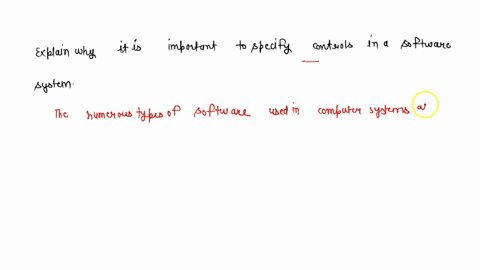 Explain why it is important to specify controls in a software
system.
The numerous types of software used in computer systems a